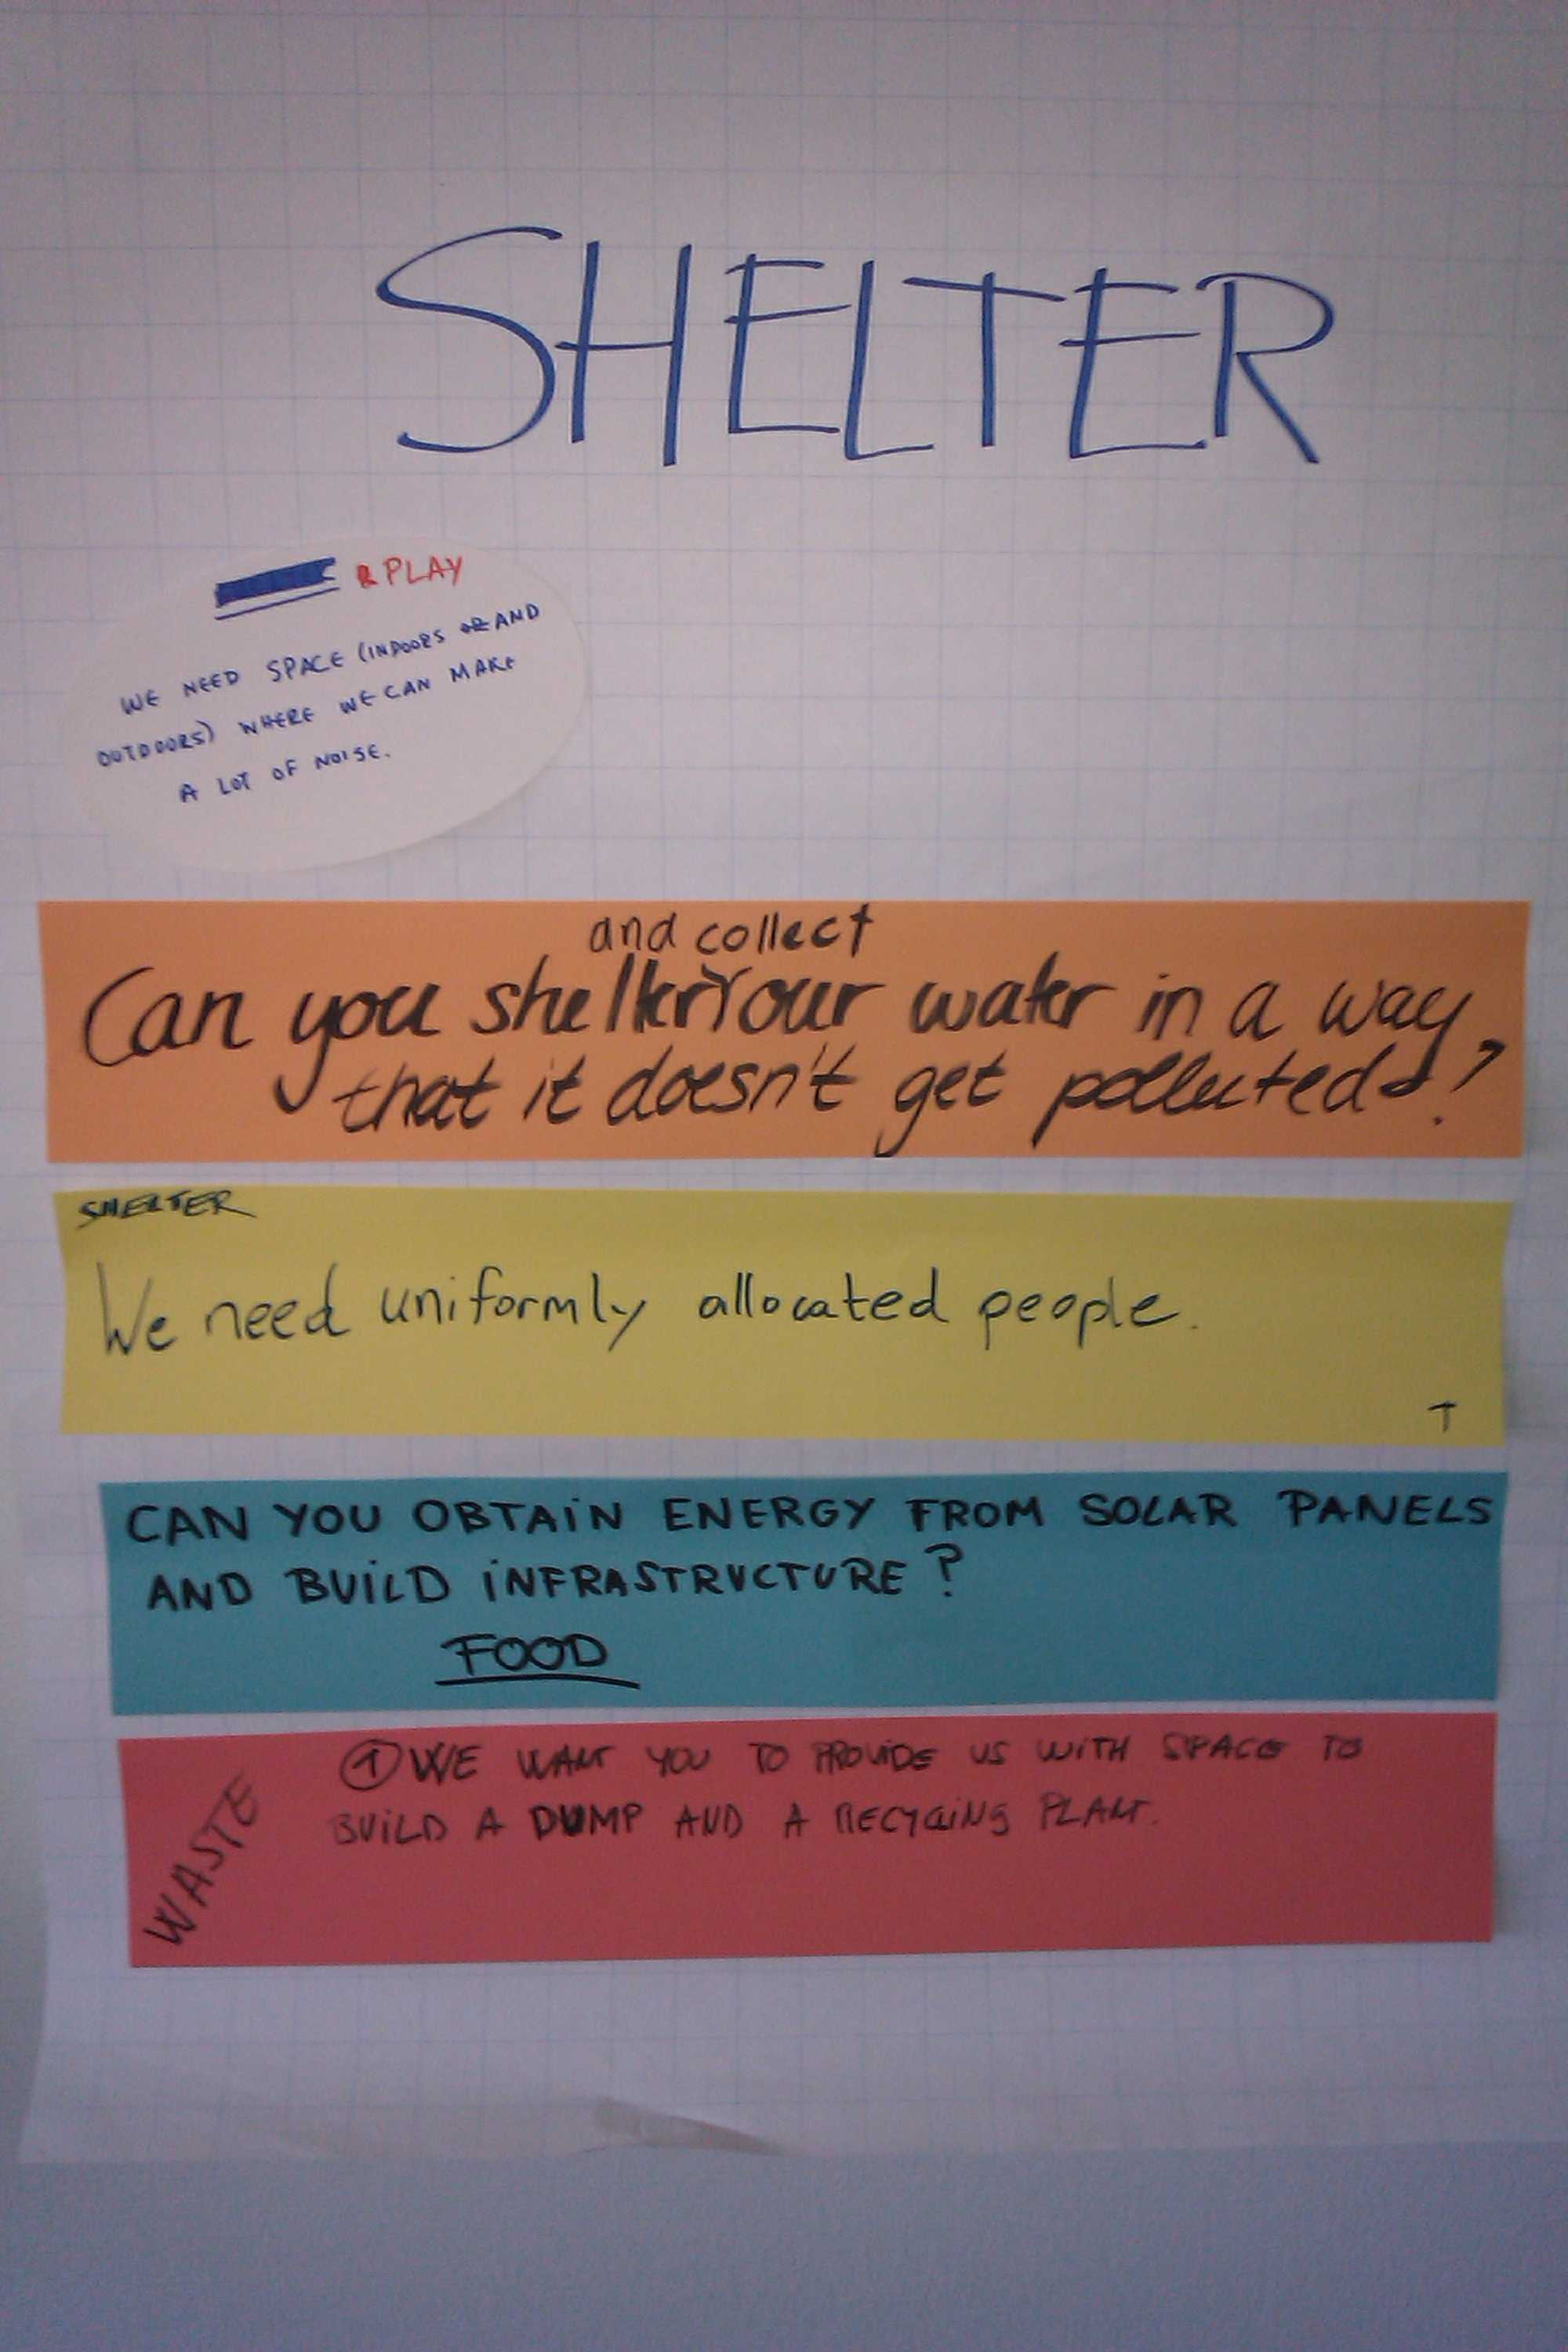 SHELTER
& PLAY
WE NEED SPACE (INDOORS AND
OUTDOORS) WHERE WE CAN MAKE
A LOT OF NOISE.
and collect
Can you shelter our water in a way
that it doesn't get polluted?
SHELTER
We need uniformly allocated people.
T
CAN YOU OBTAIN ENERGY FROM SOLAR PANELS
AND BUILD INFRASTRUCTURE?
FOOD
WASTE
1 WE WANT YOU TO PROVIDE US WITH SPACE TO
BUILD A DUMP AND A RECYCLING PLANT.